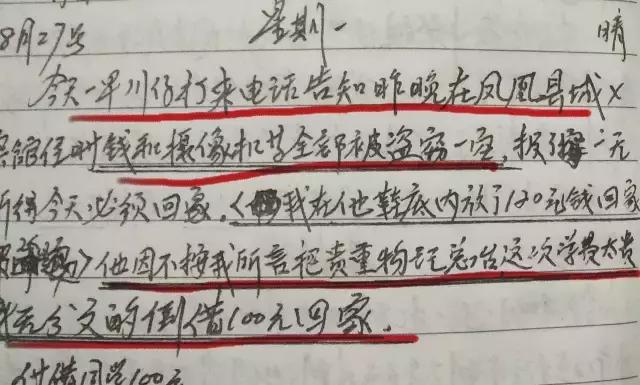 8月27号 星期一 晴
今天一早川仔打来电话告知昨晚在凤凰县城×
宾馆住时钱和摄像机等全部被盗窃一空,报了 无
所得今天必须回家。(我在他鞋底内放了120元钱回家
)他因不按我所言把贵重物 总台这次学费太贵
分文的倒借100元回家.
借同学100元